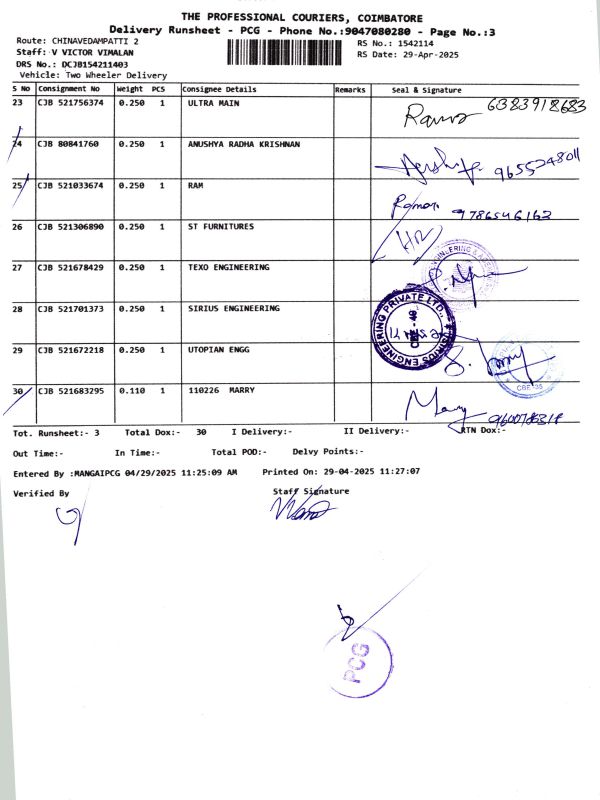 THE PROFESSIONAL COURIERS, COIMBATORE
Delivery Runsheet - PCG - Phone No.:9047080280 - Page No.:3
Route: CHINAVEDAMPATTI 2
RS No.: 1542114
Staff: V VICTOR VIMALAN
RS Date: 29-Apr-2025
DRS No.: DCJB154211403
Vehicle: Two Wheeler Delivery
S No Consignment No Weight PCS Consignee Details Remarks Seal & Signature
23 CJB 521756374 0.250 1 ULTRA MAIN 6383918683
24 CJB 80841760 0.250 1 ANUSHYA RADHA KRISHNAN 9655248011
25 CJB 521033674 0.250 1 RAM 9786546162
26 CJB 521306890 0.250 1 ST FURNITURES
27 CJB 521678429 0.250 1 TEXO ENGINEERING
28 CJB 521701373 0.250 1 SIRIUS ENGINEERING
SIRIUS ENGINEERING PRIVATE LTD.,
29 CJB 521672218 0.250 1 UTOPIAN ENGG
CBE-35
30 CJB 521683295 0.110 1 110226 MARRY
Tot. Runsheet:- 3 Total Dox:- 30 I Delivery:- II Delivery:- RTN Dox:-
Out Time:- In Time:- Total POD:- Delvy Points:-
Entered By :MANGAIPCG 04/29/2025 11:25:09 AM Printed On: 29-04-2025 11:27:07
Verified By Staff Signature
PCG